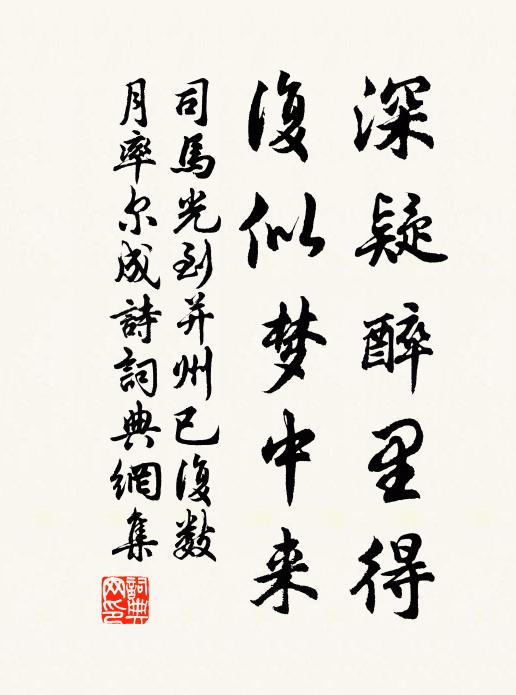 深疑醉里得
復似梦中来
司馬光到并州已復数
月率尔成詩詞典網集
詞典网印